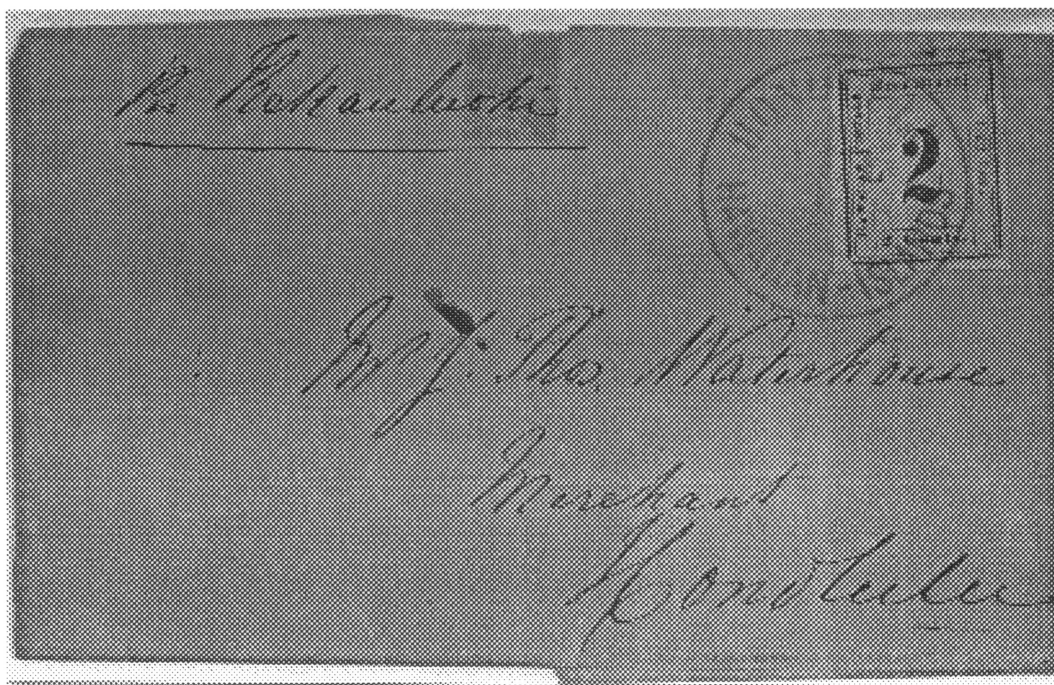 Pr Kekauluohi
2
Mr J. Thos. Waterhouse
Merchant
Honolulu